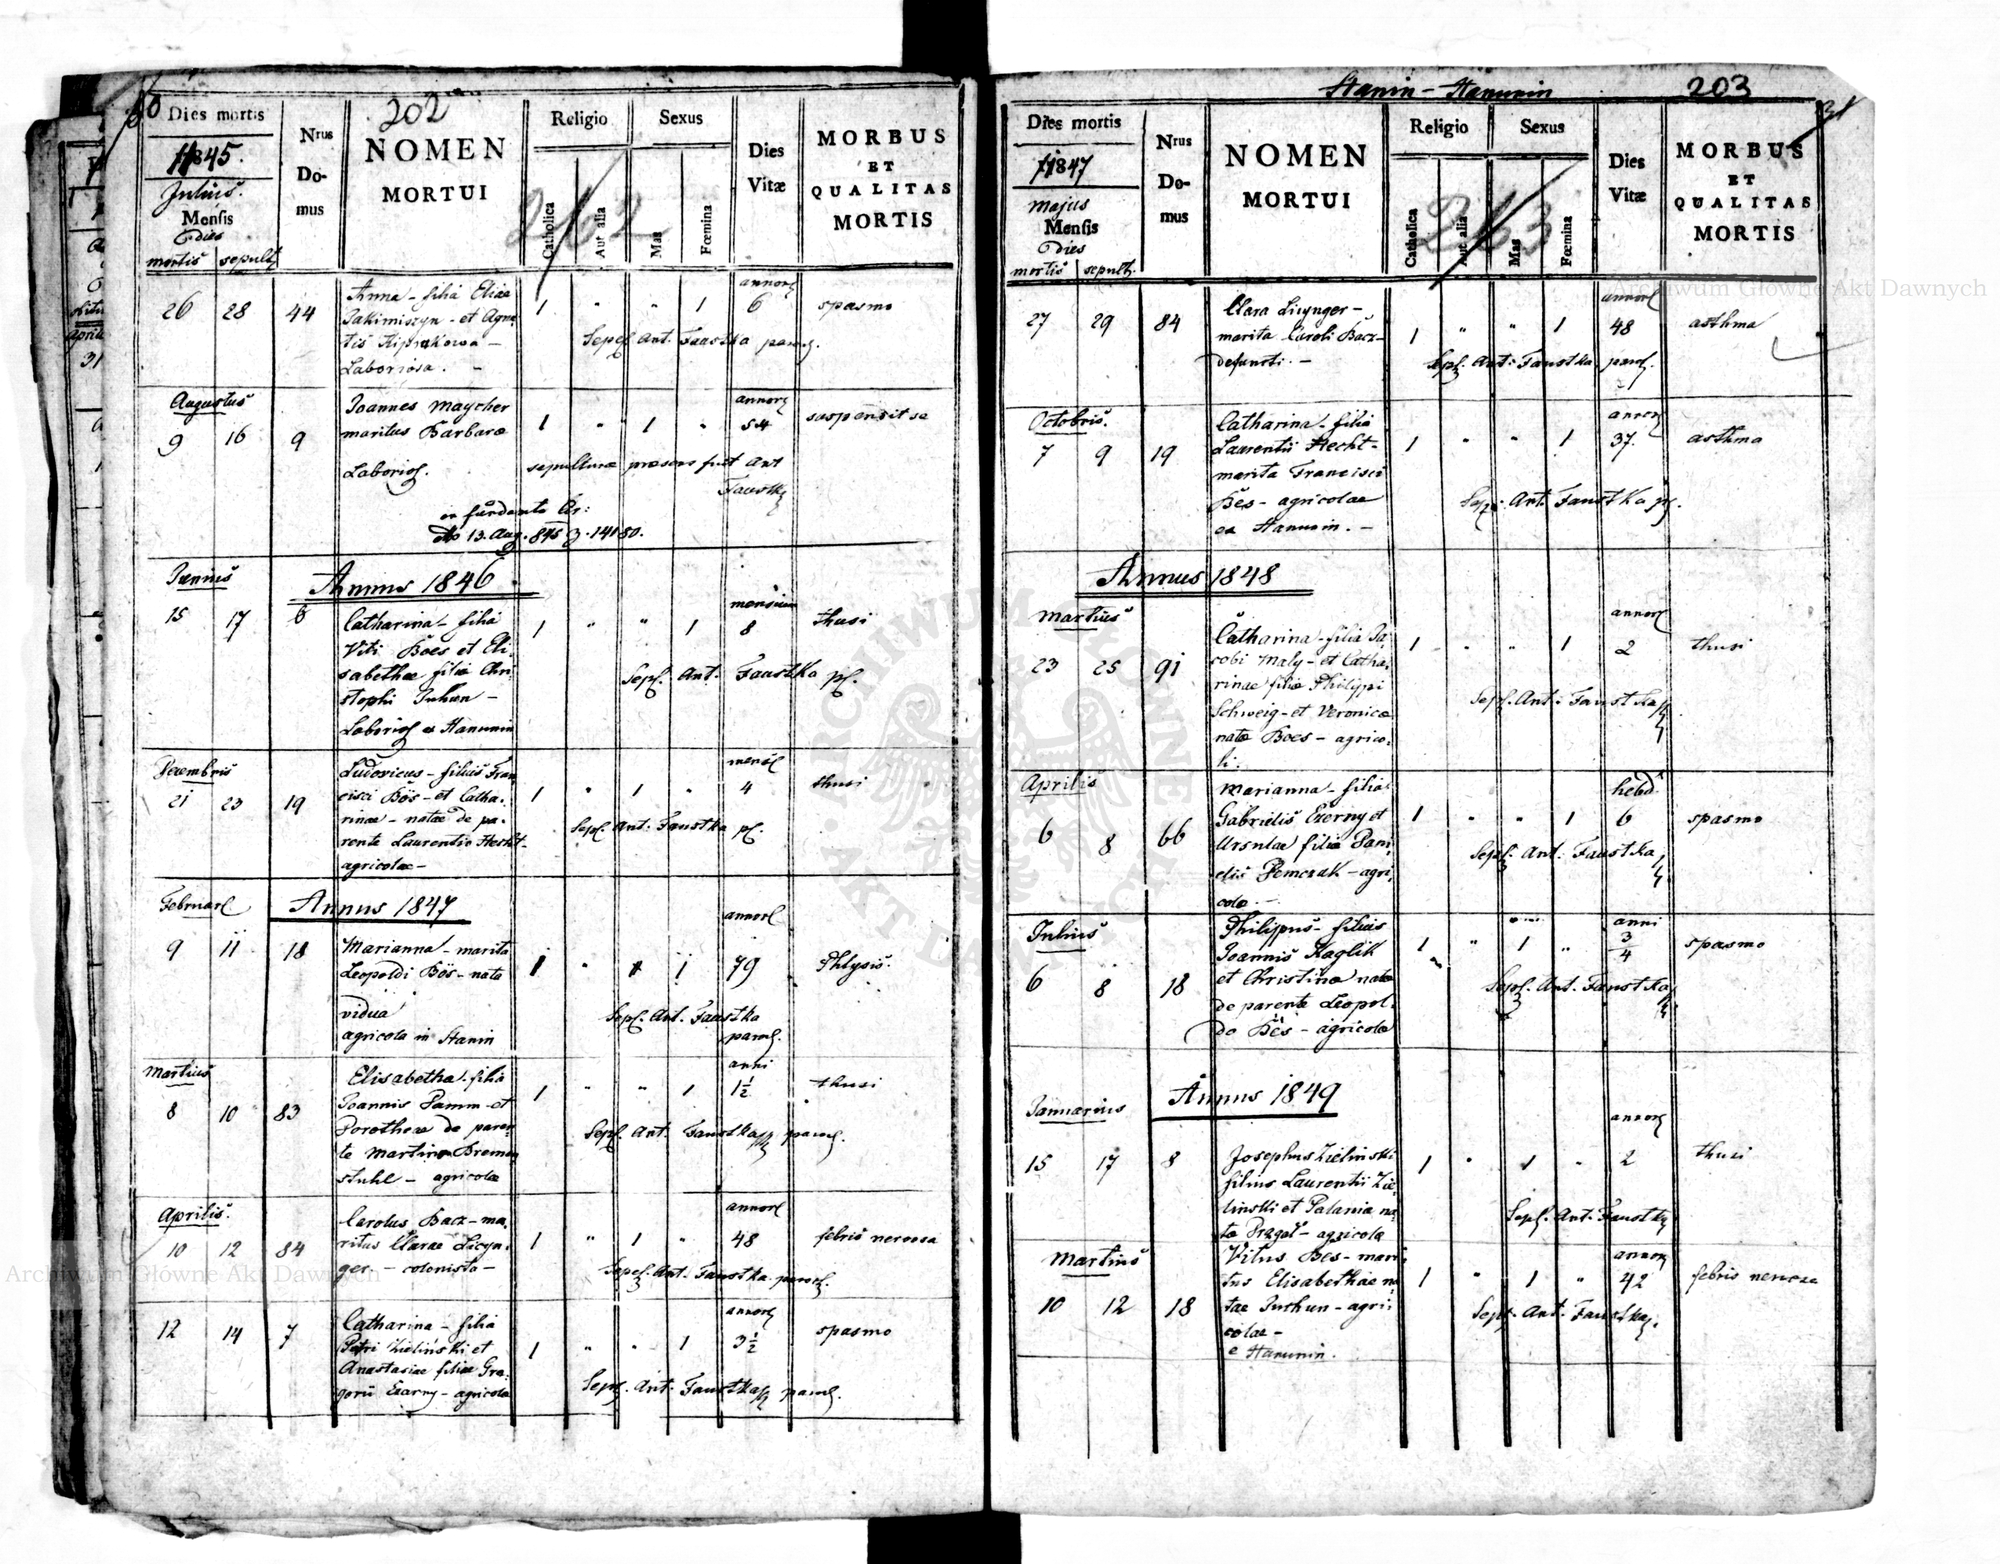 60
202
Dies mortis
1845.
Julius.
Mensis
Dies
mortis sepult
Nrus
Do-
mus
NOMEN
MORTUI
Religio
Catholica
Aut alia
Sexus
Mas
Fœmina
Dies
Vitæ
MORBUS
ET
QUALITAS
MORTIS
262
26 28 44
Anna - filia Eliae
Jakimiszyn - et Agne-
tis
Laboriosa. -
1 " " 1
annor
6
spasmo
Sepel Ant. Faustka paroch.
Augustus
9 16 9
Joannes Maycher
maritus Barbarae
Laborios.
1 " 1 "
annor
54
suspendit se
sepulturae praesens fuit Ant
Faustka
13. Aug. 845 z. 14180.
Junius
Annus 1846
15 17 6
Catharina - filia
Viti Boes et Eli-
sabethae filiae Chri-
stophi Juhun -
Laborios ex Hanunin
1 " " 1
mensium
8
thusi
Sepel. Ant. Faustka
Decembris
21 23 19
Ludovicus - filius Fran
cisci Bös - et Catha-
rinae - natae de pa-
rente Laurentio Hecht
agricolae -
1 " 1 "
mens
4
thusi
Sepel. Ant. Faustka
Februar
Annus 1847
9 11 18
Marianna - marita
Leopoldi Bös - nata
vidua
agricola in Stanin
1 " 1
annor
79
Phtysis.
Sepel. Ant. Faustka
paroch.
Martius
8 10 83
Elisabetha - filia
Joannis Pamm - et
Dorotheae de paren-
te Martino Bremen
stuhl - agricolae
1 " " 1
anni
1½
thusi
Sepel. Ant. Faustka paroch.
Aprilis.
10 12 84
Carolus Bacz - ma-
ritus Clarae Licyn-
ger. - colonista -
1 " 1 "
annor
48
febris nervosa
Sepel. Ant. Faustka paroch.
12 14 7
Catharina - filia
Petri Zieliński et
Anastasiae filiae Gre-
gorii Czarny - agricola
1 " " 1
annor
3½
spasmo
Sepel. Ant. Faustka paroch.
Stanin - Hanunin 203
31
Dies mortis
1847
Majus
Mensis
Dies
mortis sepult.
Nrus
Do-
mus
NOMEN
MORTUI
Religio
Catholica
Aut alia
Sexus
Mas
Fœmina
Dies
Vitæ
MORBUS
ET
QUALITAS
MORTIS
263
27 29 84
Clara Licynger -
marita Caroli Bacz -
defuncti. -
1 " " 1
annor
48
asthma
Sepel. Ant. Faustka paroch.
Octobris.
7 9 19
Catharina - filia
Laurentii Hecht -
marita Francisci
Bës - agricolae
ex Hanunin. -
1 " " 1
annor
37.
asthma
Sepel. Ant. Faustka
Annus 1848
Martius
23 25 91
Catharina - filia Ja-
cobi Maly - et Catha-
rinae filiae Philippi
Schweig - et Veronicae
natae Boes - agrico-
li.
1 " " 1
annor
2
thusi
Sepel. Ant. Faustka
Aprilis
6 8 66
Marianna - filia
Gabrielis Czerny et
Ursulae filiae Dani-
elis Demczak - agri-
colae -
1 " " 1
hebd.
6
spasmo
Sepel. Ant. Faustka
Julius
6 8 18
Philippus - filius
Joannis Kaglik
et Christinae natae
de parente Leopol-
do Bës - agricolae
1 " 1 "
anni
3/4
spasmo
Sepel. Ant. Faustka
Annus 1849
Januarius
15 17 8
Josephus Zielinski
filius Laurentii Zie-
linski et Palaniae na-
ta Dragal - agricolae
1 " 1 "
annor
2
thusi
Sepel. Ant. Faustka
Martius
10 12 18
Vitus Bës - mari-
tus Elisabethae na-
tae Juhun - agri-
colae -
e Hanunin.
1 " 1 "
annor
42
febris nervosa
Sepel. Ant. Faustka.
Archiwum Główne Akt Dawnych
Archiwum Główne Akt Dawnych
ARCHIWUM GŁÓWNE AKT DAWNYCH